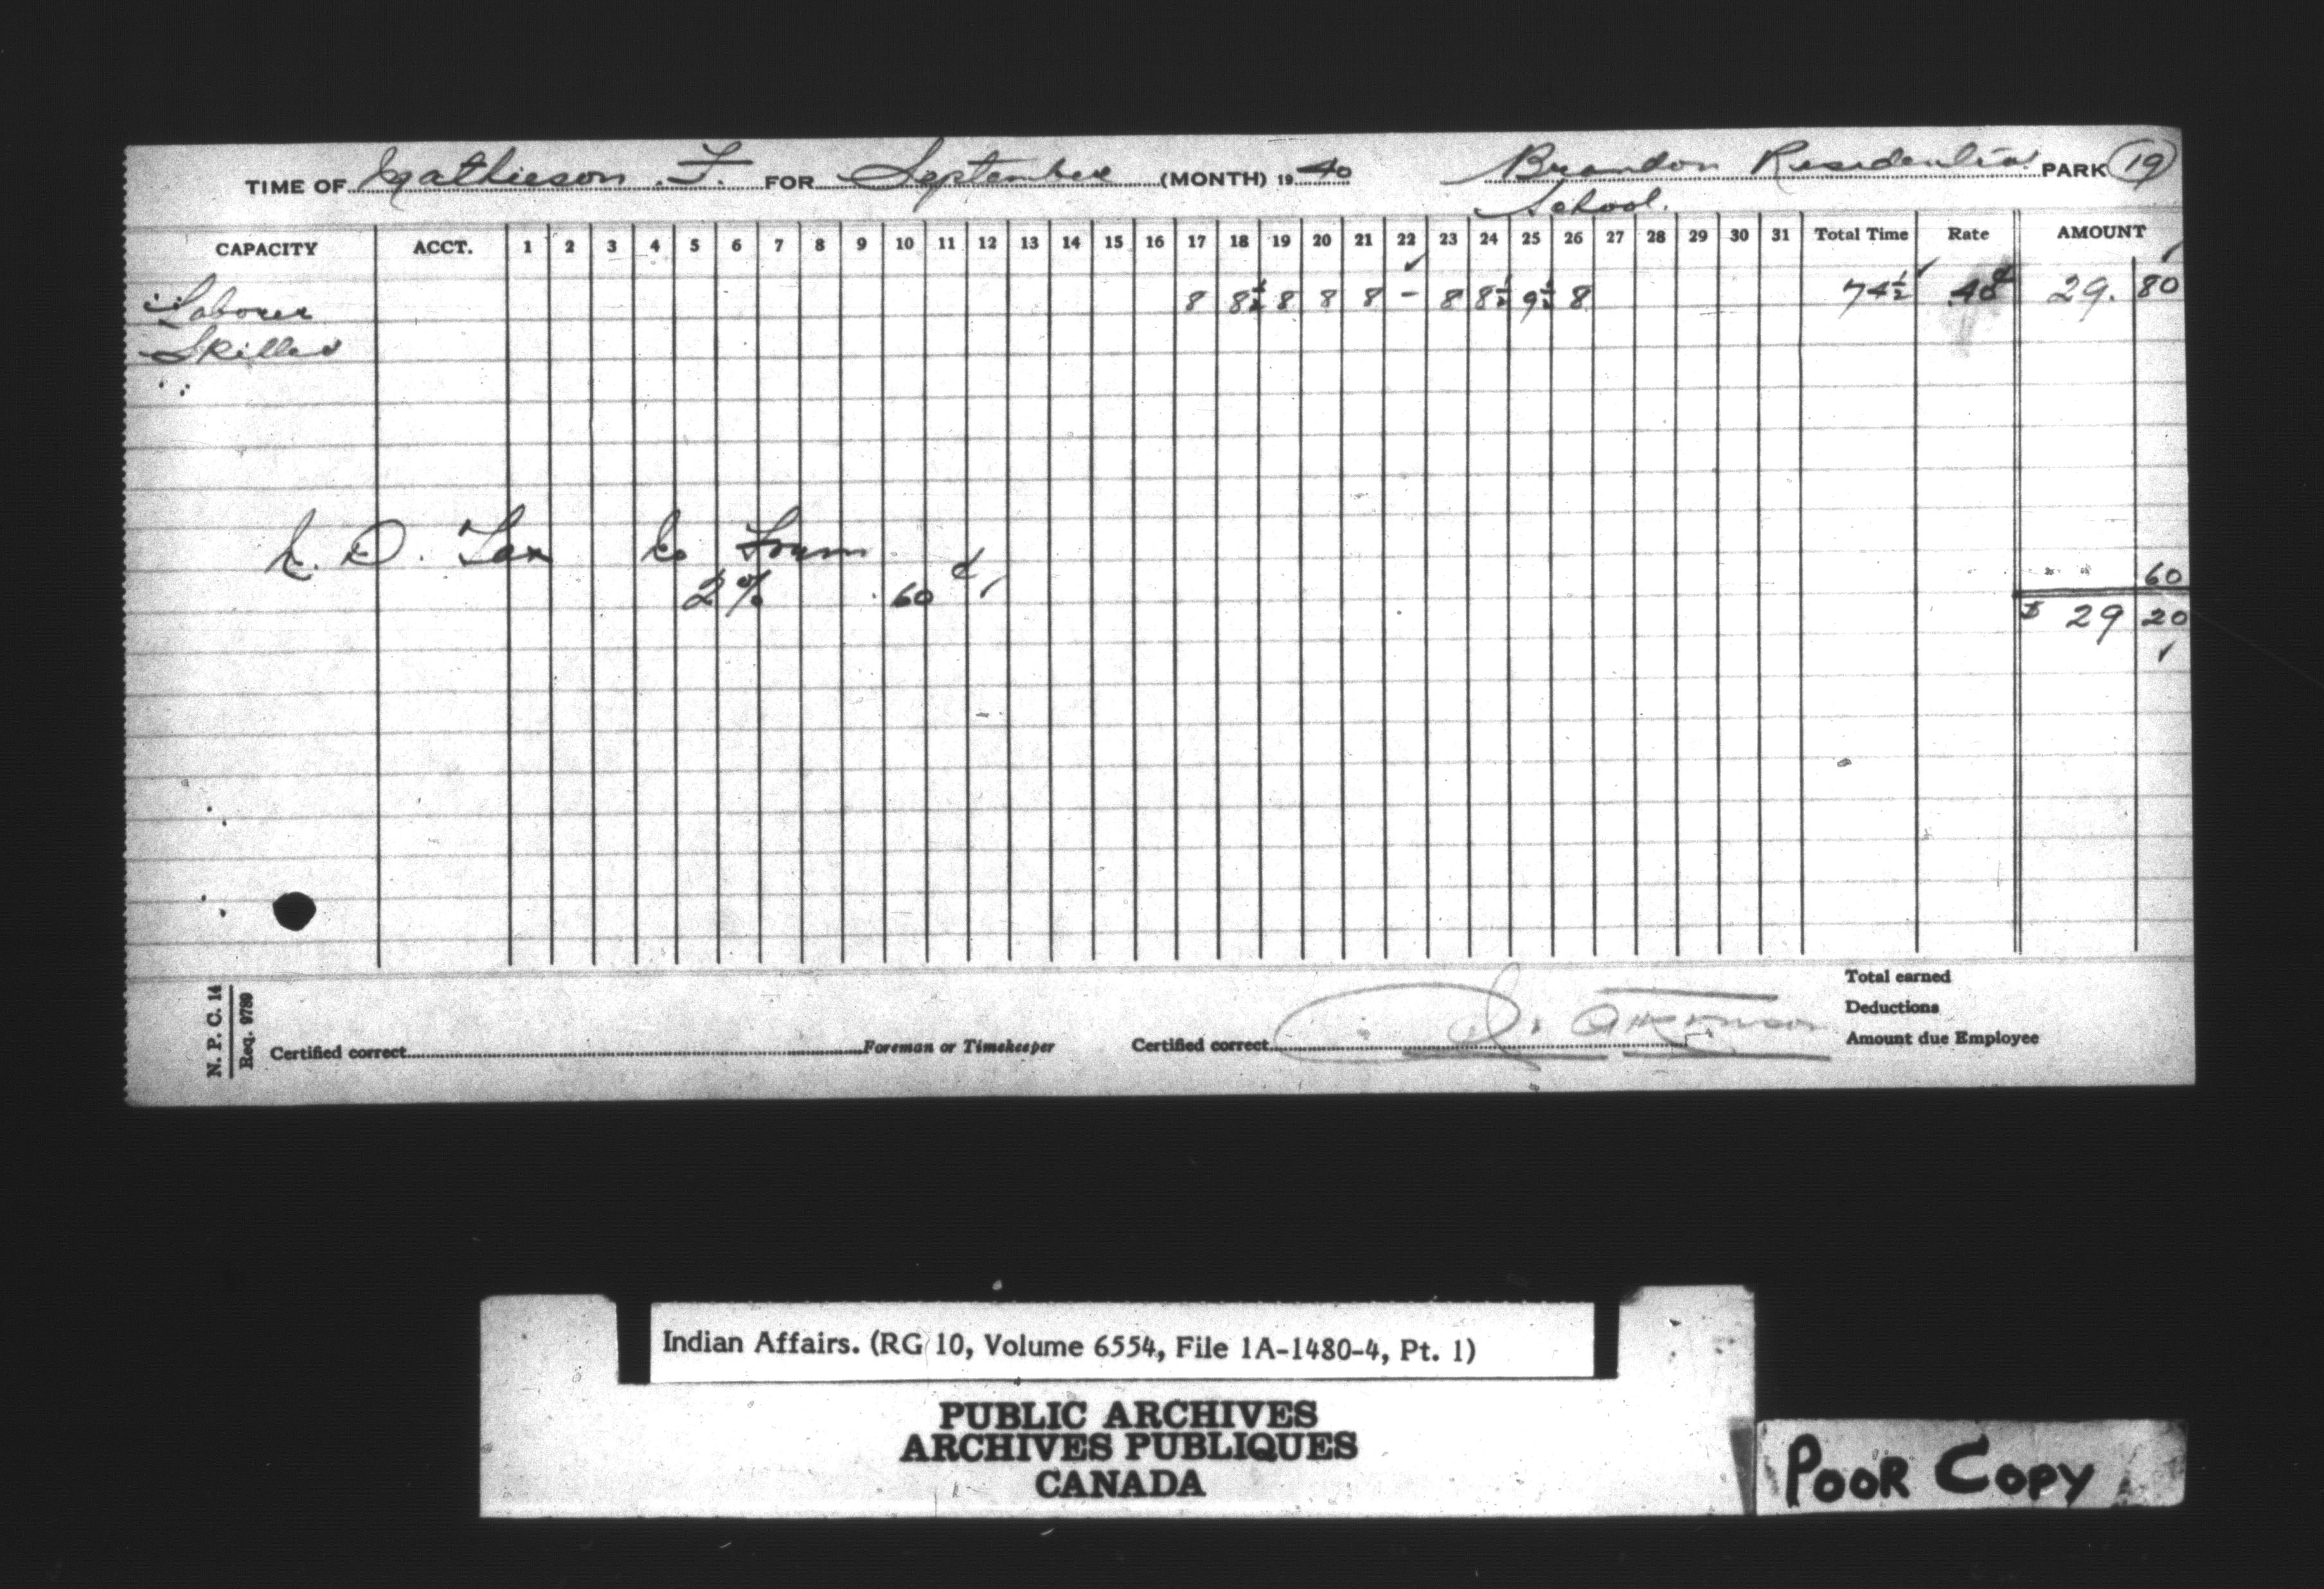 TIME OF Mathieson . F. FOR September (MONTH) 19 40 Brandon Residential PARK 19
School.
CAPACITY ACCT. 1 2 3 4 5 6 7 8 9 10 11 12 13 14 15 16 17 18 19 20 21 22 23 24 25 26 27 28 29 30 31 Total Time Rate AMOUNT
Laborer 8 8½ 8 8 8 – 8 8½ 9½ 8 74½ .40¢ 29. 80
Skilled
N. D. Tax
2% 60¢ 60
$ 29 20
Total earned
Deductions
Certified correct Foreman or Timekeeper Certified correct Atkinson Amount due Employee
N. P. C. 14
Req. 9789
Indian Affairs. (RG 10, Volume 6554, File 1A-1480-4, Pt. 1)
PUBLIC ARCHIVES
ARCHIVES PUBLIQUES
CANADA
POOR COPY